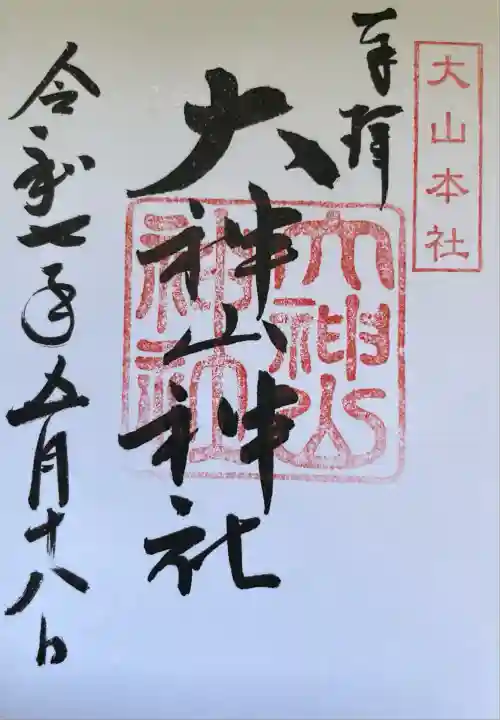 大山本社
奉拝
大神山神社
大神山
神社
令和七年五月十八日